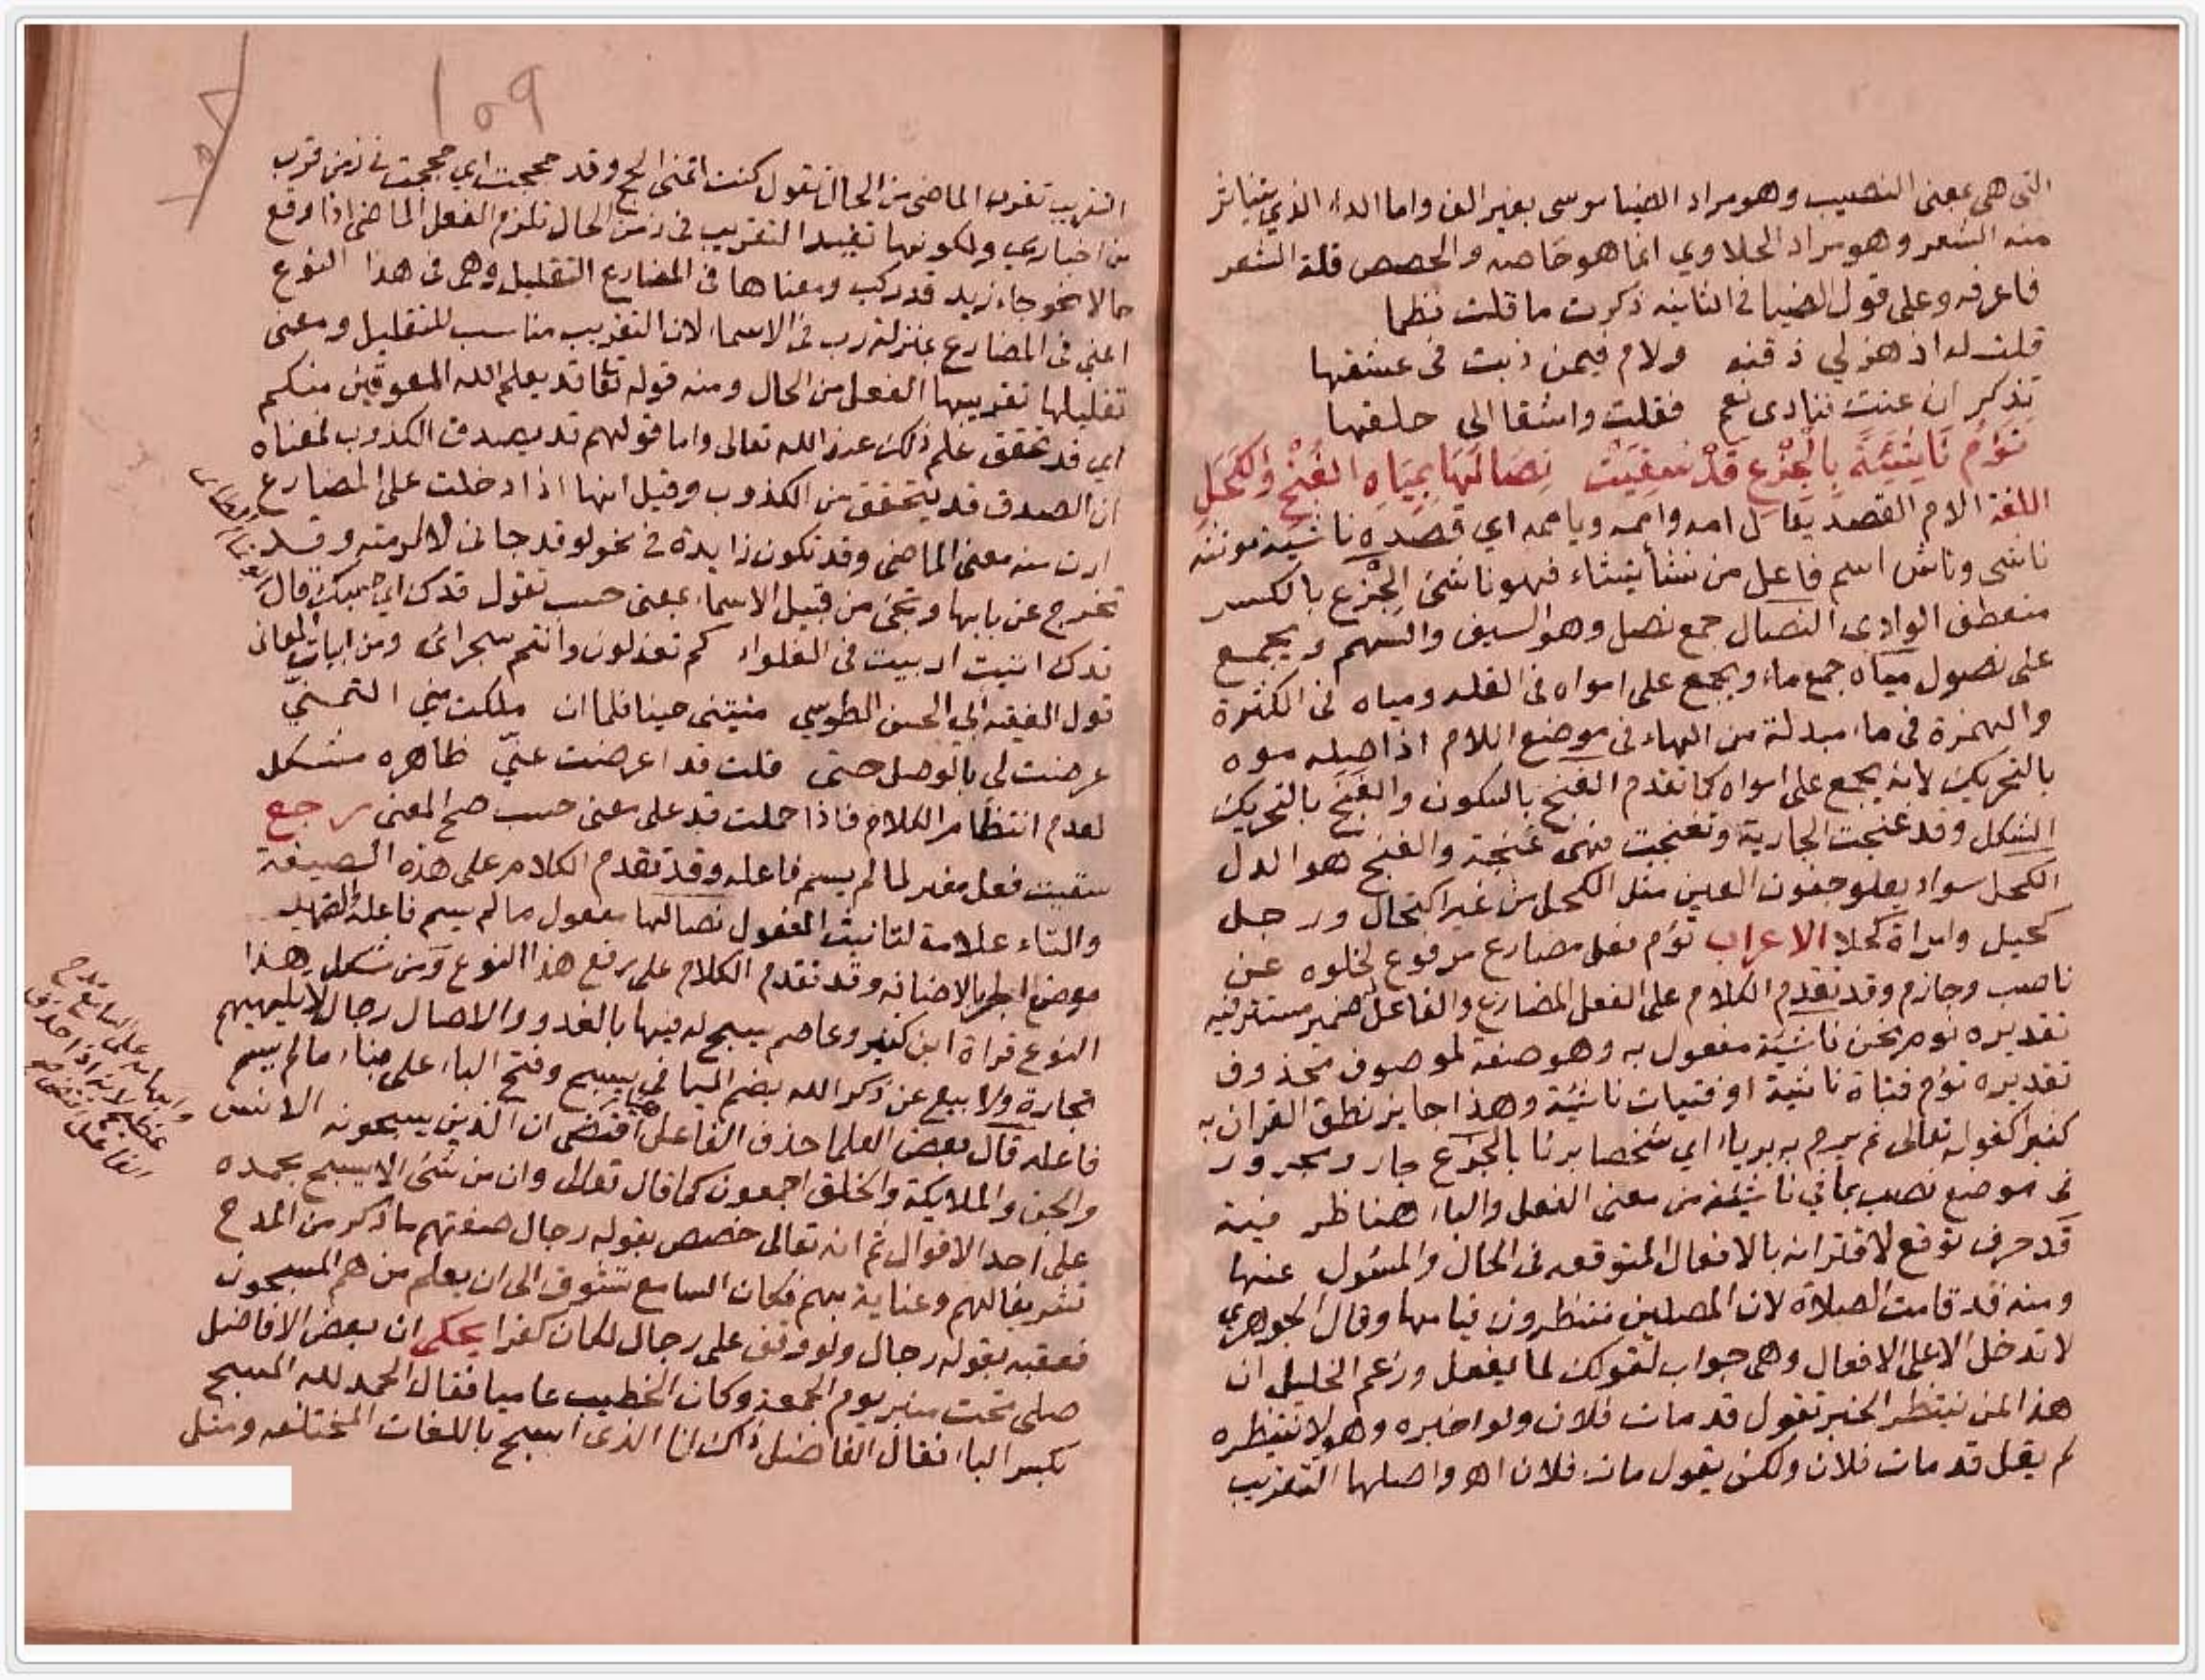 التى هى بمعنى النصيب وهو مراد الضيا موسى بغير الف واما الداء الذي يتناثر
منه الشعر وهو مراد الحلاوي انما هو حاصه والحصص قلة الشعر
فاعرفه وعلى قول الضيا فى الثانيه ذكرت ما قلت نظما
قلت له اذ هز لي ذقنه ولام فيمن ذبت فى عشقها
تذكر ان عنت ننادى نعم فقلت واشقا الى حلقها
نَؤُمُّ نَاشِئَةً بِالْجِزْعِ قَدْ سُقِيَتْ نِصَالُهَا بِمِيَاهِ الْغُنْجِ وَالْكَحَلِ
اللغة الام القصد يقال امه واممه وياممه اي قصده ناشئة مونثه
ناشى وناش اسم فاعل من نشأ ينشاء فهو ناشئ الجِزْع بالكسر
منعطف الوادى النصال جمع نصل وهو السيف والسهم ويجمع
على نصول مياه جمع ماء ويجمع على امواه فى القله ومياه فى الكثرة
والهمزة فى ماء مبدلة من الهاء فى موضع اللام اذ اصله موه
بالتحريك لانه يجمع على امواه كما تقدم الغنج بالسكون والغَنَج بالتحريك
الشكل وقد غنجت الجارية وتغنجت فهى غنجة والغنج هو الدل
الكحل سواد يعلو جفون العين مثل الكحل من غير اكتحال ورجل
كحيل وامراة كحلا الاعراب نؤم فعل مضارع مرفوع لخلوه عن
ناصب وجازم وقد تقدم الكلام على الفعل المضارع والفاعل ضمير مستتر فيه
تقديره نوم نحن ناشئة مفعول به وهو صفة لموصوف محذوف
تقديره نؤم فتاة ناشئة او فتيات ناشئة وهذا جايز نطق القران به
كثيرا كقوله تعالى ثم يرم به برياء اي شخصا بريا بالجزع جار ومجرور
فى موضع نصب بما في ناشئة من معنى الفعل والباء هنا ظرفية
قد حرف توقع لاقترانه بالافعال المتوقعه فى الحال والمسئول عنها
ومنه قد قامت الصلاة لان المصلين ننتظرون قيامها وقال الجوهري
لا تدخل الا على الافعال وهى جواب لقولك لما يفعل وزعم الخليل ان
هذا لمن ينتظر الخبر تقول قد مات فلان ولو اخبره وهو لا ينتظره
لم يقل قد مات فلان ولكن يقول مات فلان اه واصلها التقريب
١٥٩
التقريب تقرب الماضى من الحال تقول كنت اتمنى الحج وقد حججت اي حججت فى زمن قرب
من اخباري ولكونها تفيد التقريب فى زمن الحال تلزم الفعل الماضى اذا وقع
حالا نحو جاء زيد قد ركب ومعناها فى المضارع التقليل وهى فى هذا النوع
اعني فى المضارع بمنزلة رب فى الاسماء لان التقريب مناسب للتقليل ومعنى
تقليلها تقريبها الفعل من الحال ومنه قوله تعا قد يعلم الله المعوقين منكم
اي قد تحقق علم ذلك عند الله تعالى واما قولهم قد يصدق الكذوب فمعناه
ان الصدق قد يتحقق من الكذوب وقيل انها اذا دخلت على المضارع
ارت منه معنى الماضى وقد تكون زايدة فى نحو لو قد جانى لاكرمته وقد
تخرج عن بابها وتجئ من قبيل الاسماء بمعنى حسب تقول قدك اي حسبك قال
قدك اتئب اربيت فى الغلواء كم تعذلون وانتم سجرائى ومن ابيات المعانى
قول الفقيه ابي الحسن الطوسي منيتنى حينا فلما ان ملكت مني التمنّي
عرضت لى بالوصل حتى قلت قد اعرضت عنّي ظاهره مشكل
لعدم انتظام الكلام فاذا حملت قد على معنى حسب صح المعنى رجع
سقيت فعل مغير لما لم يسم فاعله وقد تقدم الكلام على هذه الصيغة
والتاء علامة لتانيث المفعول نصالها مفعول ما لم يسم فاعله والضمير
موضع الجر بالاضافة وقد تقدم الكلام على رفع هذا النوع ومن شكل هذا
النوع قراة ابن كثير وعاصم يسبح له فيها بالغدو والاصال رجال لا يلهيهم
تجارة ولا بيع عن ذكر الله بضم اليا فى يسبح وفتح الباء على بناء ما لم يسم
فاعله قال بعض العلما حذف الفاعل هنا اقتضى ان الذين يسبحونه الانس
والجن والملايكة والخلق اجمعون كما قال تعالى وان من شئ الا يسبح بحمده
على احد الاقوال ثم انه تعالى خصص بقوله رجال صفتهم ما ذكر من المدح
تشريفا لهم وعناية بهم فكان السامع تشوف الى ان يعلم من هم المسبحون
فعقبه بقوله رجال ولو وقف على رجال لكان كفرا يحكى ان بعض الافاضل
صلى تحت منبر يوم الجمعة وكان الخطيب عاميا فقال الحمد لله المسبح
بكسر الباء فقال الفاضل ذاك انا الذى اسبح باللغات المختلفه ومثل